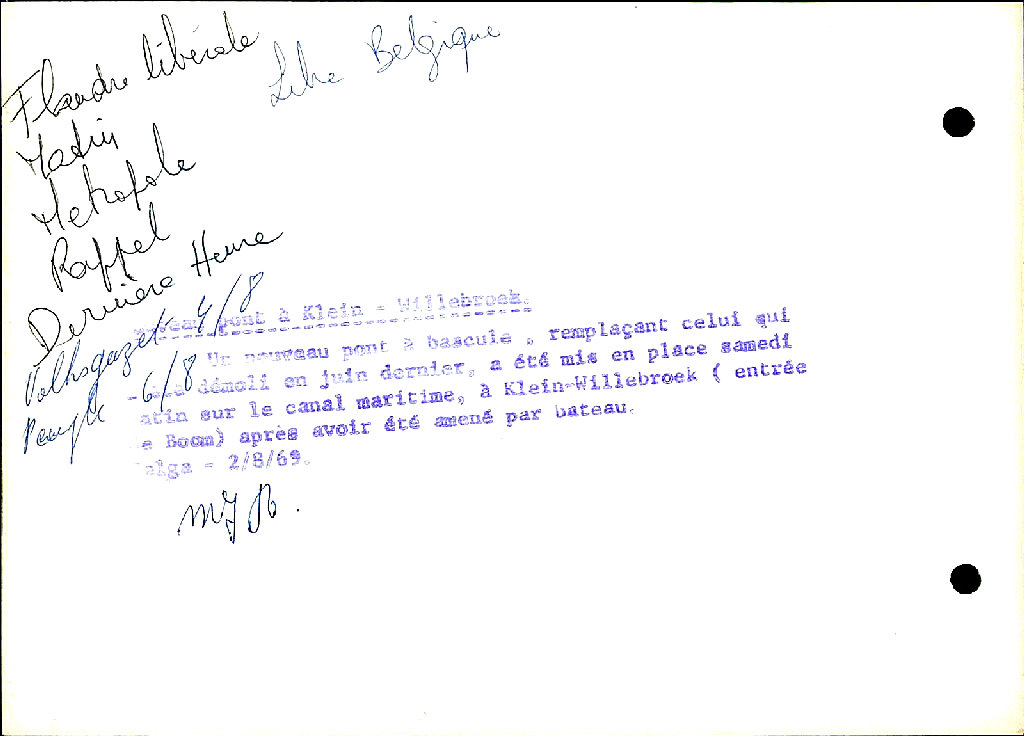 Flandre libérale
Libre Belgique
Matin
Métropole
Rappel
Dernière Heure
Volksgazet 4/8
Peuple 6/8
pont à Klein - Willebroek.
Un nouveau pont à bascule, remplaçant celui qui
démoli en juin dernier, a été mis en place samedi
atin sur le canal maritime, à Klein-Willebroek ( entrée
e Boom) après avoir été amené par bateau.
elga - 2/8/69.